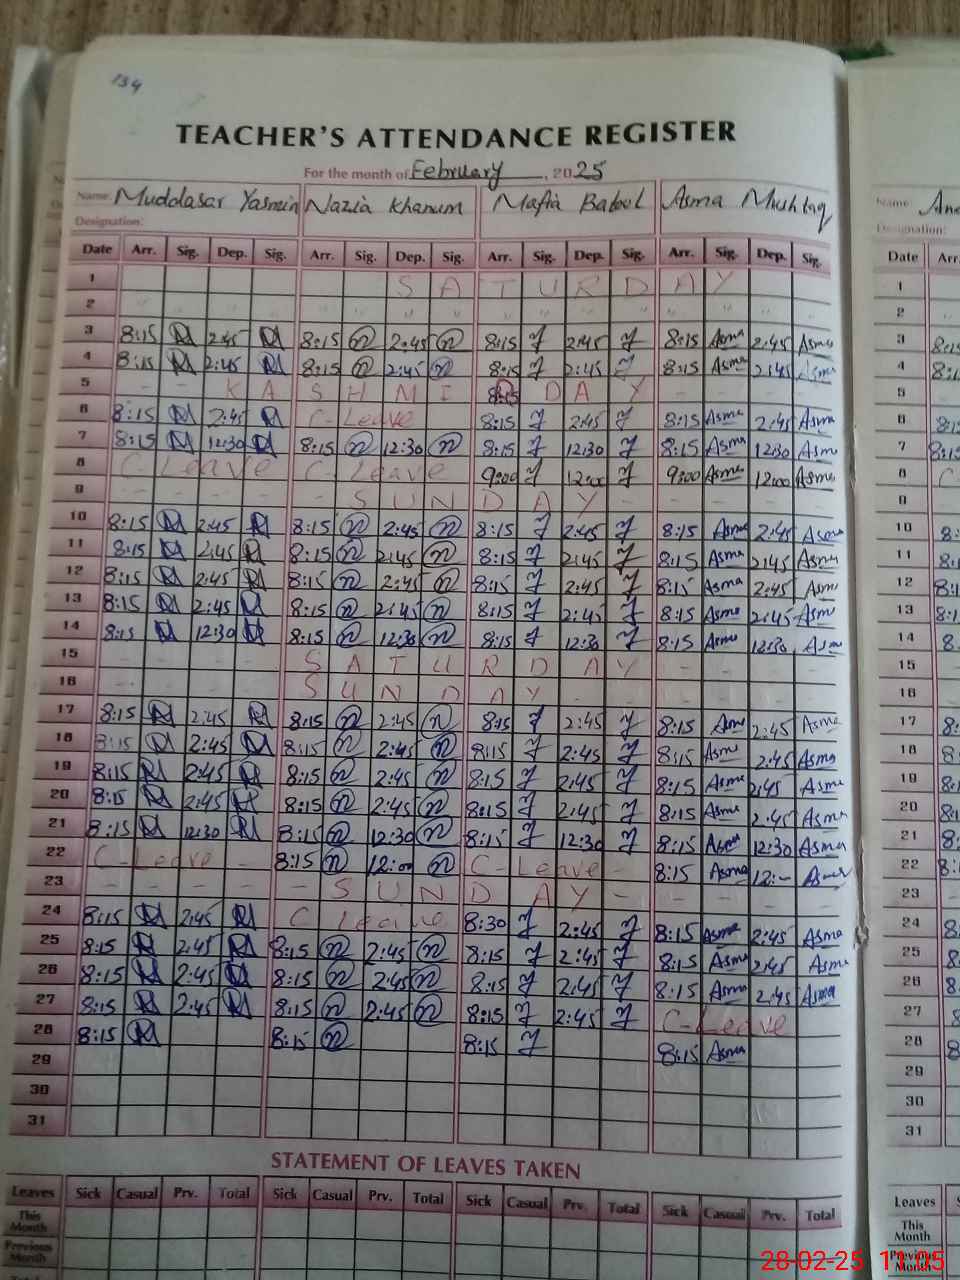 134
TEACHER'S ATTENDANCE REGISTER
For the month of February, 2025
Name: Muddasar Yasmin Nazia Khanum Mafia Batool Asma Mushtaq Name
Designation: Designation:
Date Arr. Sig. Dep. Sig. Arr. Sig. Dep. Sig. Arr. Sig. Dep. Sig. Arr. Sig. Dep. Sig. Date Arr.
1 SATURDAY 1
2 " " " " " " " " 2
3 8:15 2:45 8:15 n 2:45 n 8:15 2:45 8:15 Asma 2:45 Asma 3
4 8:15 2:45 8:15 n 2:45 n 8:15 2:45 8:15 Asma 2:45 Asma 4
5 - - KASHMI DAY 5
6 8:15 2:45 C-Leave 8:15 2:45 8:15 Asma 2:45 Asma 6
7 8:15 12:30 8:15 n 12:30 n 8:15 12:30 8:15 Asma 12:30 Asma 7
8 C-Leave C-Leave 9:00 12:00 9:00 Asma 12:00 Asma 8
9 - - - - - SUNDAY - - - - 9
10 8:15 2:45 8:15 n 2:45 n 8:15 2:45 8:15 Asma 2:45 Asma 10
11 8:15 2:45 8:15 n 2:45 n 8:15 2:45 8:15 Asma 2:45 Asma 11
12 8:15 2:45 8:15 n 2:45 n 8:15 2:45 8:15 Asma 2:45 Asma 12
13 8:15 2:45 8:15 n 2:45 n 8:15 2:45 8:15 Asma 2:45 Asma 13
14 8:15 12:30 8:15 n 12:30 n 8:15 12:30 8:15 Asma 12:30 Asma 14
15 - - - - SATURDAY - - - - 15
16 - - - - SUNDAY - - - - 16
17 8:15 2:45 8:15 n 2:45 n 8:15 2:45 8:15 Asma 2:45 Asma 17
18 8:15 2:45 8:15 n 2:45 n 8:15 2:45 8:15 Asma 2:45 Asma 18
19 8:15 2:45 8:15 n 2:45 n 8:15 2:45 8:15 Asma 2:45 Asma 19
20 8:15 2:45 8:15 n 2:45 n 8:15 2:45 8:15 Asma 2:45 Asma 20
21 8:15 12:30 8:15 n 12:30 n 8:15 12:30 8:15 Asma 12:30 Asma 21
22 C-Leave - 8:15 n 12:00 n C-Leave - 8:15 Asma 12:- Asma 22
23 - - - - - SUNDAY - - - - 23
24 8:15 2:45 C Leave 8:30 2:45 8:15 Asma 2:45 Asma 24
25 8:15 2:45 8:15 n 2:45 n 8:15 2:45 8:15 Asma 2:45 Asma 25
26 8:15 2:45 8:15 n 2:45 n 8:15 2:45 8:15 Asma 2:45 Asma 26
27 8:15 2:45 8:15 n 2:45 n 8:15 2:45 C-Leave 27
28 8:15 8:15 n 8:15 8:15 Asma 28
29 29
30 30
31 31
STATEMENT OF LEAVES TAKEN
Leaves Sick Casual Prv. Total Sick Casual Prv. Total Sick Casual Prv. Total Sick Casual Prv. Total Leaves
This Month This Month
Previous Month Previous Month
28-02-25 11:05